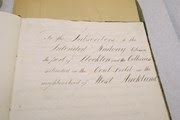 To the Subscribers to the
Intended Railway between
the port of Stockton and the Collieries
situated in the Coal Field in the
neighbourhood of West Auckland